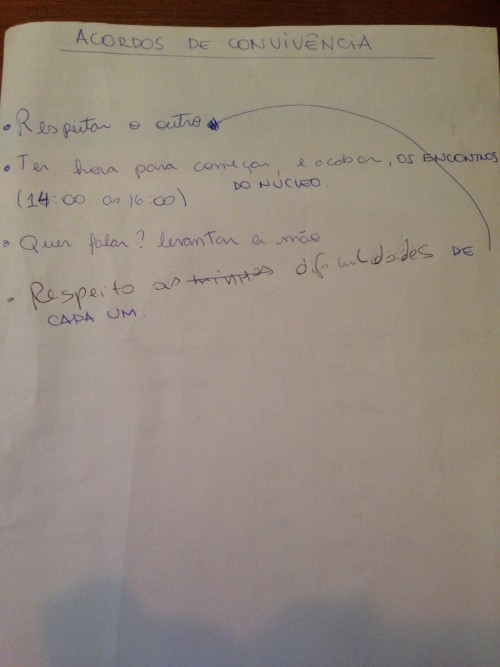 ACORDOS DE CONVIVÊNCIA
• Respeitar o outro
• Ter hora para começar, e acabar, OS ENCONTROS
(14:00 as 16:00) DO NÚCLEO.
• Quer falar? levantar a mão
• Respeito as minhas dificuldades DE
CADA UM.